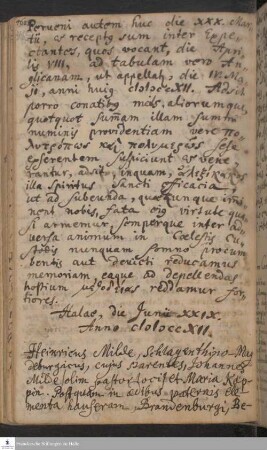 Perveni autem huc die XXX. Mar-
tii, et receptus sum inter Expe-
ctantes, quos vocant, die Apri-
lis VIII, ad tabulam vero An-
glicanam, ut appellant, die IV. Ma-
ji, anni huius CIƆIƆCCXII. Adsit
porro conatibus meis, aliorumque,
quotquot summam illam summi
numinis providentiam vere πο-
λυτρόπως καὶ πολυμερῶς sese
exserentem suspiciunt et vene-
rantur, adsit, inquam,
illa Spiritus Sancti efficacia,
ut ad subeunda, quaecunque immi-
nent nobis, fata eius virtute qua-
si armemur, semperque inter ad-
versa animum in Coelestis Cu-
stodis nunquam somno procum-
bentis aut devicti reducamus
memoriam, eaque ad depellendas
hostium μεθοδείας reddamur for-
tiores.
Halae, die Junii XXIX.
Anno CIƆIƆCCXII.
Heinricus Milde, Schlagenthino-Mag-
deburgicus, cujus parentes, Johannes
Milde olim Pastor loci, et Maria
Postquam in aedibus paternis ele-
menta hauseram, Brandenburgi, Be-